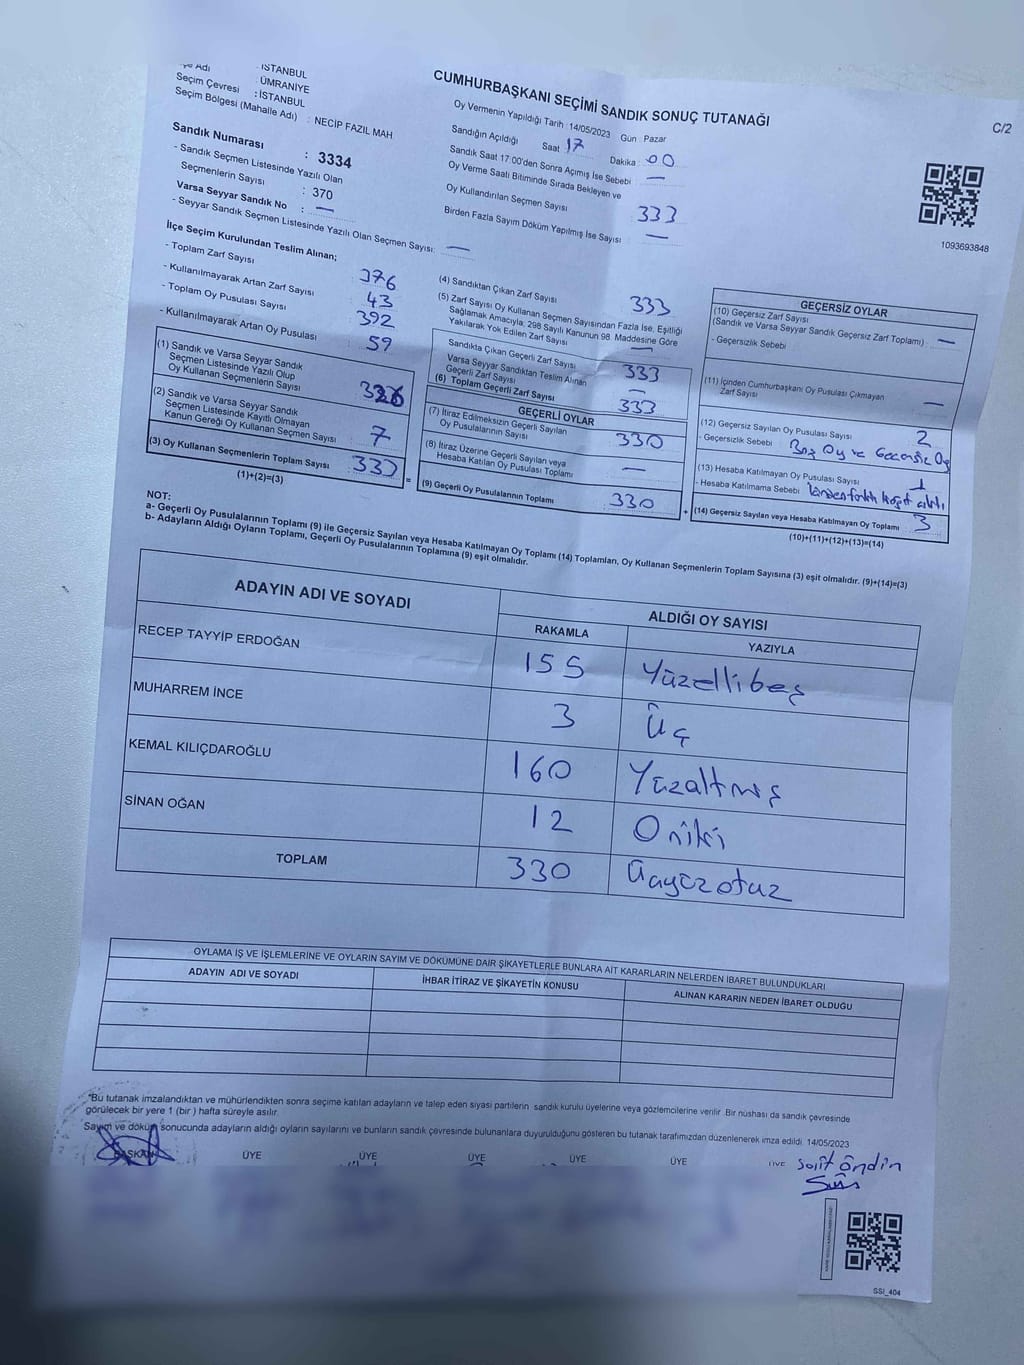 İSTANBUL
ÜMRANİYE
Seçim Çevresi : İSTANBUL
Seçim Bölgesi (Mahalle Adı) : NECİP FAZIL MAH
CUMHURBAŞKANI SEÇİMİ SANDIK SONUÇ TUTANAĞI
C/2
Oy Vermenin Yapıldığı Tarih : 14/05/2023 Gün : Pazar
Sandığın Açıldığı Saat 17 Dakika : 00
Sandık Saat 17:00'den Sonra Açılmış İse Sebebi —
Oy Verme Saati Bitiminde Sırada Bekleyen ve
Oy Kullandırılan Seçmen Sayısı 333
Birden Fazla Sayım Döküm Yapılmış İse Sayısı —
1093693848
Sandık Numarası : 3334
- Sandık Seçmen Listesinde Yazılı Olan
Seçmenlerin Sayısı : 370
Varsa Seyyar Sandık No : —
- Seyyar Sandık Seçmen Listesinde Yazılı Olan Seçmen Sayısı: —
İlçe Seçim Kurulundan Teslim Alınan;
- Toplam Zarf Sayısı 376
- Kullanılmayarak Artan Zarf Sayısı 43
- Toplam Oy Pusulası Sayısı 392
- Kullanılmayarak Artan Oy Pusulası 59
(1) Sandık ve Varsa Seyyar Sandık
Seçmen Listesinde Yazılı Olup
Oy Kullanan Seçmenlerin Sayısı 326
(2) Sandık ve Varsa Seyyar Sandık
Seçmen Listesinde Kayıtlı Olmayan
Kanun Gereği Oy Kullanan Seçmen Sayısı 7
(3) Oy Kullanan Seçmenlerin Toplam Sayısı 333
(1)+(2)=(3)
(4) Sandıktan Çıkan Zarf Sayısı 333
(5) Zarf Sayısı Oy Kullanan Seçmen Sayısından Fazla İse, Eşitliği
Sağlamak Amacıyla, 298 Sayılı Kanunun 98. Maddesine Göre
Yakılarak Yok Edilen Zarf Sayısı —
Sandıkta Çıkan Geçerli Zarf Sayısı 333
Varsa Seyyar Sandıktan Teslim Alınan
Geçerli Zarf Sayısı —
(6) Toplam Geçerli Zarf Sayısı 333
GEÇERLİ OYLAR
(7) İtiraz Edilmeksizin Geçerli Sayılan
Oy Pusulalarının Sayısı 330
(8) İtiraz Üzerine Geçerli Sayılan veya
Hesaba Katılan Oy Pusulası Toplamı —
(9) Geçerli Oy Pusulalarının Toplamı 330
GEÇERSİZ OYLAR
(10) Geçersiz Zarf Sayısı
(Sandık ve Varsa Seyyar Sandık Geçersiz Zarf Toplamı) —
- Geçersizlik Sebebi
(11) İçinden Cumhurbaşkanı Oy Pusulası Çıkmayan
Zarf Sayısı —
(12) Geçersiz Sayılan Oy Pusulası Sayısı 2
- Geçersizlik Sebebi Boş Oy ve Geçersiz Oy
(13) Hesaba Katılmayan Oy Pusulası Sayısı 1
- Hesaba Katılmama Sebebi
(14) Geçersiz Sayılan veya Hesaba Katılmayan Oy Toplamı 3
(10)+(11)+(12)+(13)=(14)
NOT:
a- Geçerli Oy Pusulalarının Toplamı (9) ile Geçersiz Sayılan veya Hesaba Katılmayan Oy Toplamı (14) Toplamları, Oy Kullanan Seçmenlerin Toplam Sayısına (3) eşit olmalıdır. (9)+(14)=(3)
b- Adayların Aldığı Oyların Toplamı, Geçerli Oy Pusulalarının Toplamına (9) eşit olmalıdır.
ADAYIN ADI VE SOYADI ALDIĞI OY SAYISI
RAKAMLA YAZIYLA
RECEP TAYYİP ERDOĞAN 155 Yüzellibeş
MUHARREM İNCE 3 Üç
KEMAL KILIÇDAROĞLU 160 Yüzaltmış
SİNAN OĞAN 12 Oniki
TOPLAM 330 Üçyüzotuz
OYLAMA İŞ VE İŞLEMLERİNE VE OYLARIN SAYIM VE DÖKÜMÜNE DAİR ŞİKAYETLERLE BUNLARA AİT KARARLARIN NELERDEN İBARET BULUNDUKLARI
ADAYIN ADI VE SOYADI İHBAR İTİRAZ VE ŞİKAYETİN KONUSU ALINAN KARARIN NEDEN İBARET OLDUĞU
*Bu tutanak imzalandıktan ve mühürlendikten sonra seçime katılan adayların ve talep eden siyasi partilerin sandık kurulu üyelerine veya gözlemcilerine verilir. Bir nüshası da sandık çevresinde
görülecek bir yere 1 (bir) hafta süreyle asılır.
Sayım ve döküm sonucunda adayların aldığı oyların sayılarını ve bunların sandık çevresinde bulunanlara duyurulduğunu gösteren bu tutanak tarafımızdan düzenlenerek imza edildi 14/05/2023
BAŞKAN ÜYE ÜYE ÜYE ÜYE ÜYE ÜYE
SSI_404